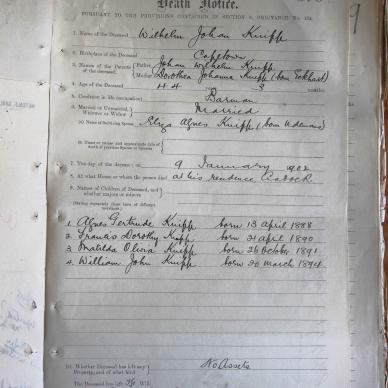 Death Notice.
PURSUANT TO THE PROVISIONS CONTAINED IN SECTION 9, ORDINANCE No. 104
1. Name of the Deceased Wilhelm Johan Knipp
2. Birthplace of the Deceased Capetown
3. Names of the Parents of the deceased Father Johan Wilhelm Knipp
Mother Dorothea Johanna Knipp (born
4. Age of the Deceased 44 years 3 months
5. Condition in life (occupation) Barman
6. Married or Unmarried, Widower or Widow Married
(a) Name of Surviving Spouse Eliza Agnes Knipp (born
(b) Name or names and approximate date of death of previous Spouse or Spouses
7. The day of the decease, on 9 January 1902
8. At what House or where the person died at his residence
9. Names of Children of Deceased, and whether majors or minors
(Stating separately those born of different marriages.)
1. Agnes Gertrude Knipp born 13 April 1888
2. Francis Dorothy Knipp born 21 April 1890
3. Matilda Olivia Knipp born 26 October 1891
4. William John Knipp born 20 March 1894
10. Whether Deceased has left any Property, and of what kind No Assets
The Deceased has left No Will.